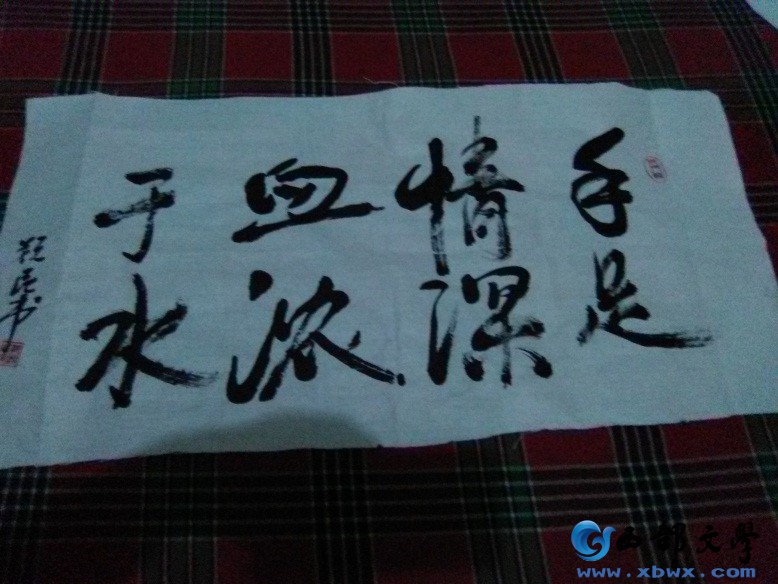 手足
情深
血浓
于水
西部文學
www.xbwx.com